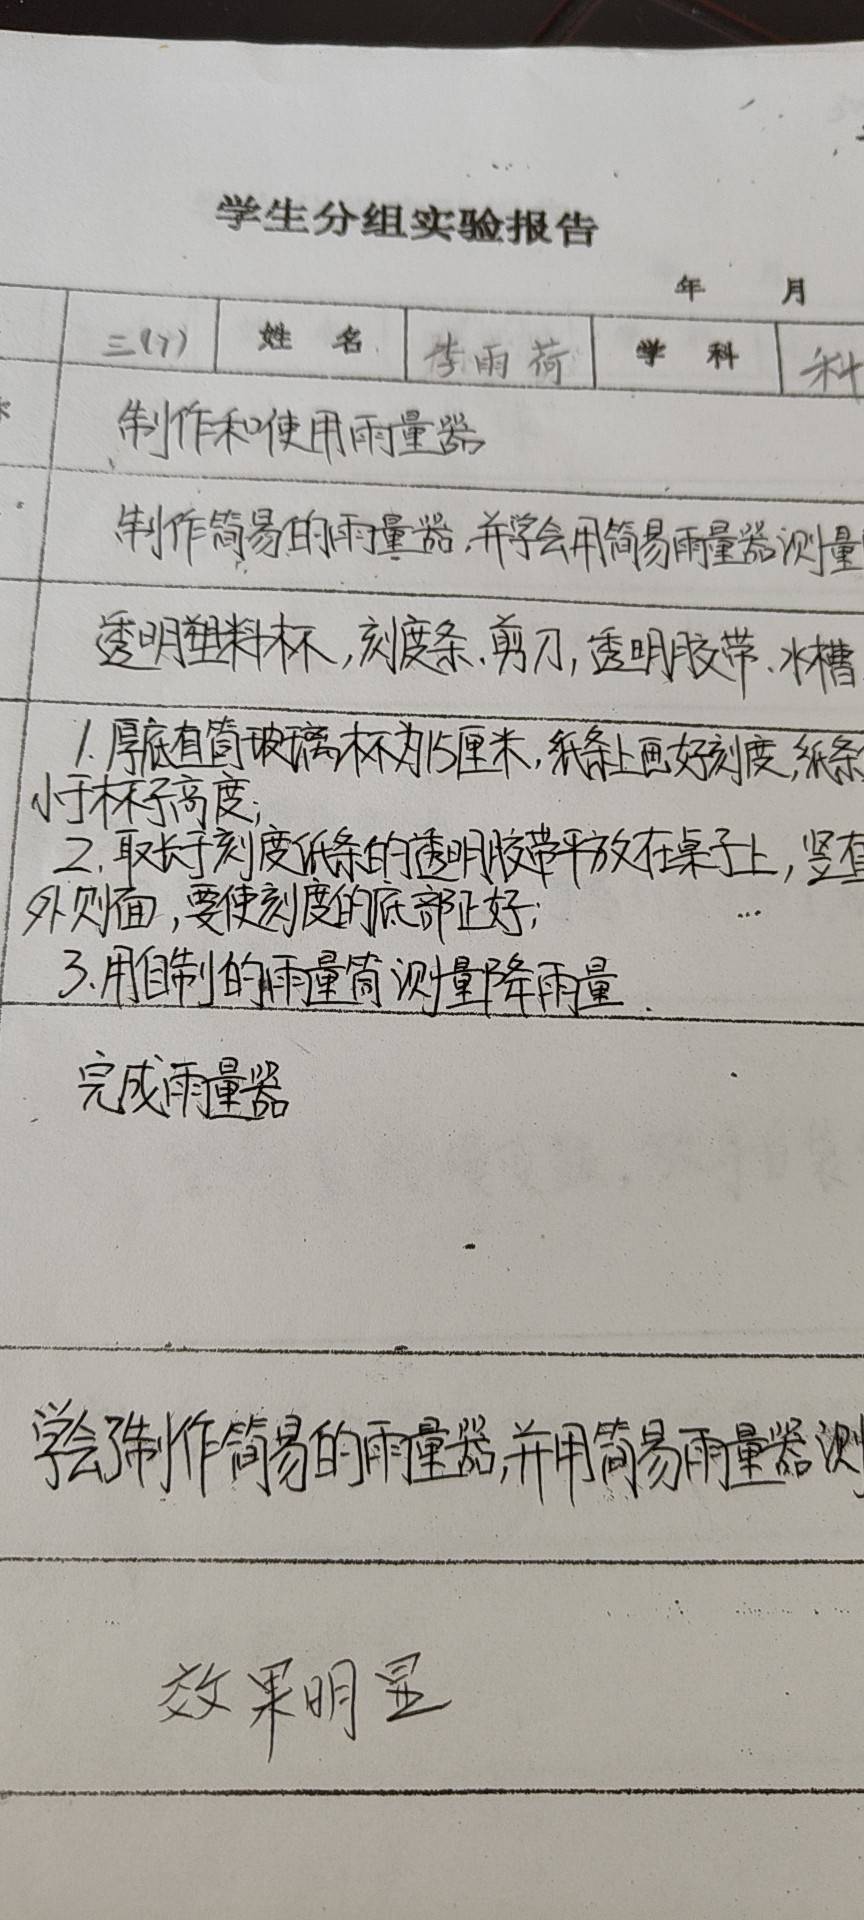 学生分组实验报告
年 月
三(7) 姓 名 李雨荷 学 科 科
制作和使用雨量器
制作简易的雨量器,并学会用简易雨量器测量
透明塑料杯,刻度条、剪刀,透明胶带、水槽
1.厚底直筒玻璃杯为15厘米,纸条上画好刻度,纸条
小于杯子高度;
2.取长于刻度纸条的透明胶带平放在桌子上,竖直
外则面,要使刻度的底部正好;
3.用自制的雨量筒测量降雨量.
完成雨量器
学会了制作简易的雨量器,并用简易雨量器测
效果明显